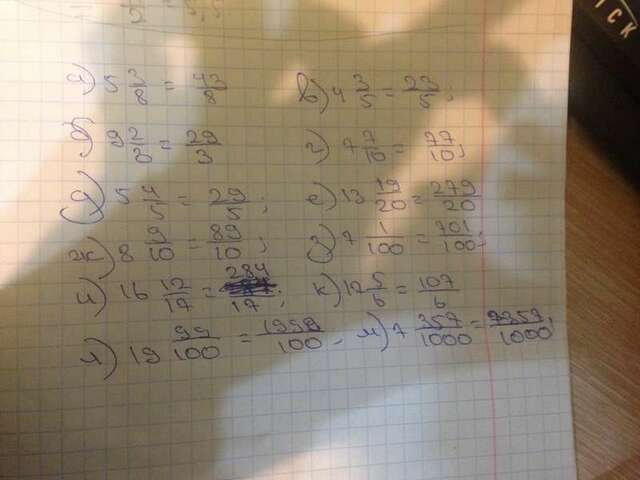 а) 5 3/8 = 43/8   в) 4 3/5 = 23/5;
б) 9 2/3 = 29/3   г) 7 7/10 = 77/10;
д) 5 4/5 = 29/5;   е) 13 19/20 = 279/20
ж) 8 9/10 = 89/10;   з) 7 1/100 = 701/100;
и) 16 12/17 = 284/17;   к) 17 5/6 = 107/6
л) 19 99/100 = 1999/100   м) 7 357/1000 = 7357/1000;